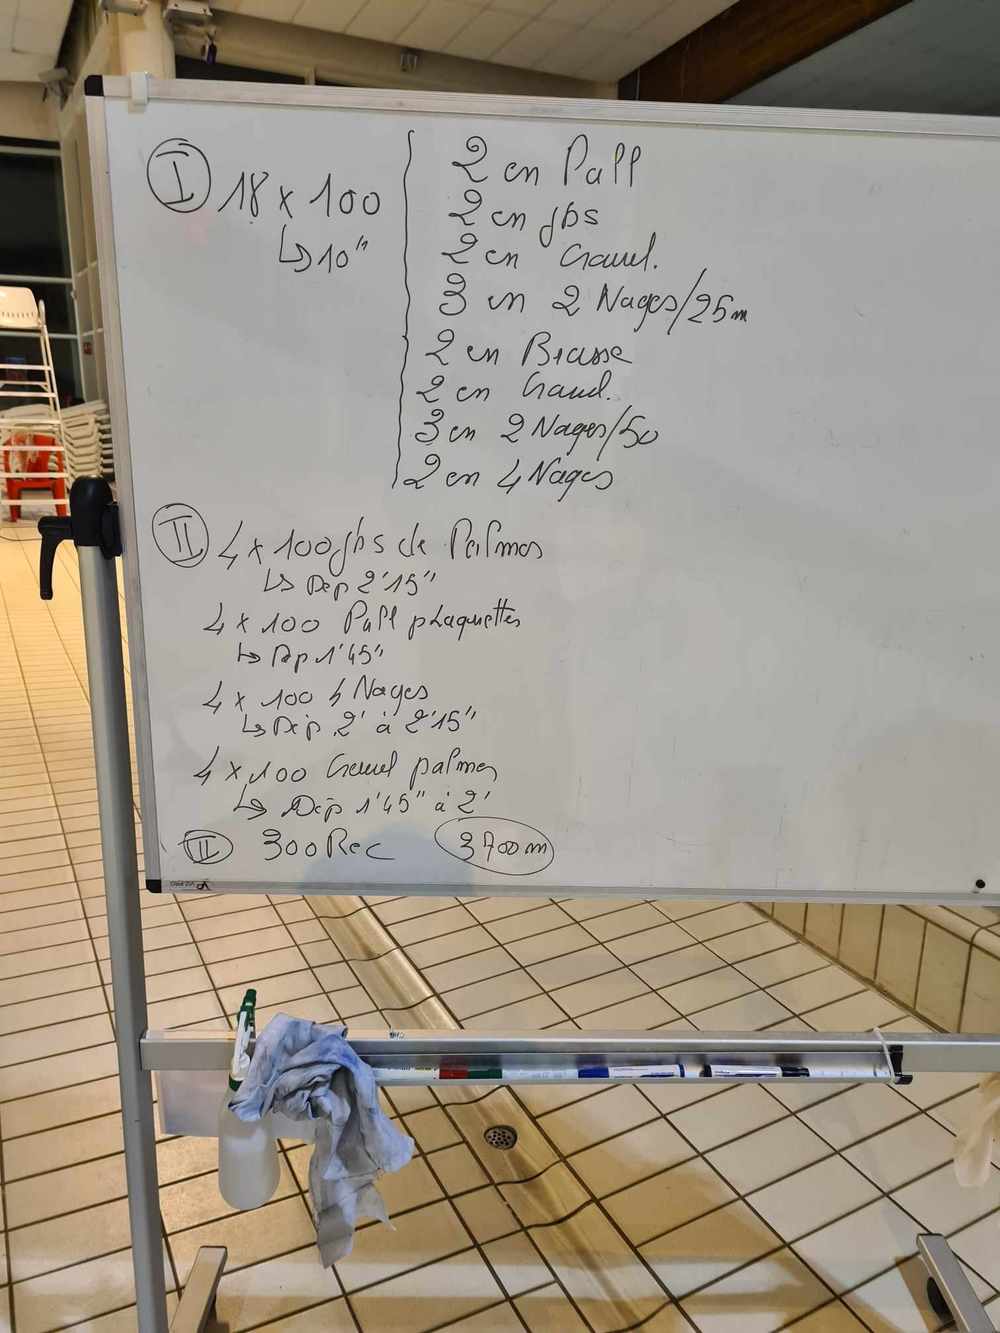 I 18 x 100
↳ 10"
2 en Pull
2 en jbs
2 en Crawl.
3 en 2 Nages/25m
2 en Brasse
2 en Crawl.
3 en 2 Nages/50
2 en 4 Nages
II 4 x 100 jbs de Palmes
↳ Dép 2'15"
4 x 100 Pull plaquettes
↳ Dép 1'45"
4 x 100 4 Nages
↳ Dép 2' à 2'15"
4 x 100 Crawl palmes
↳ Dép 1'45" à 2'
III 300 Rec 3700m